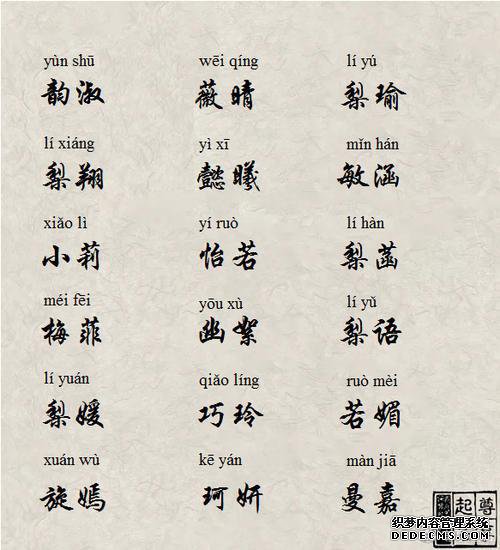 yùn shū wēi qíng lí yú
韵淑 薇晴 梨瑜
lí xiáng yì xī mǐn hán
梨翔 懿曦 敏涵
xiǎo lì yí ruò lí hàn
小莉 怡若 梨菡
méi fēi yōu xù lí yǔ
梅菲 幽絮 梨语
lí yuán qiǎo líng ruò mèi
梨媛 巧玲 若媚
xuán wù kē yán màn jiā
旋嫣 珂妍 曼嘉
尊
起
织梦内容管理系统
DEDECMS.COM